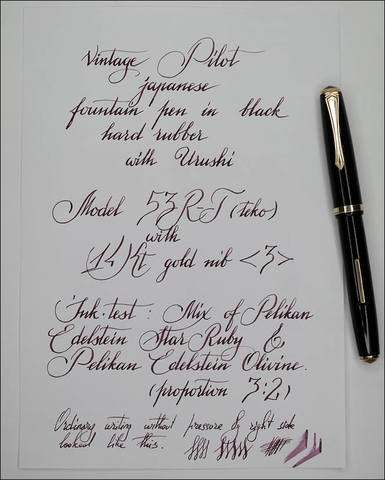 Vintage Pilot
japanese
fountain pen in black
hard rubber
with Urushi
Model 53R-T (teko)
with
(14)Kt gold nib <3>
Ink-test : Mix of Pelikan
Edelstein Star Ruby &
Pelikan Edelstein Olivine.
(proportion 3:2)
Ordinary writing without pressure & right side
looked like this.